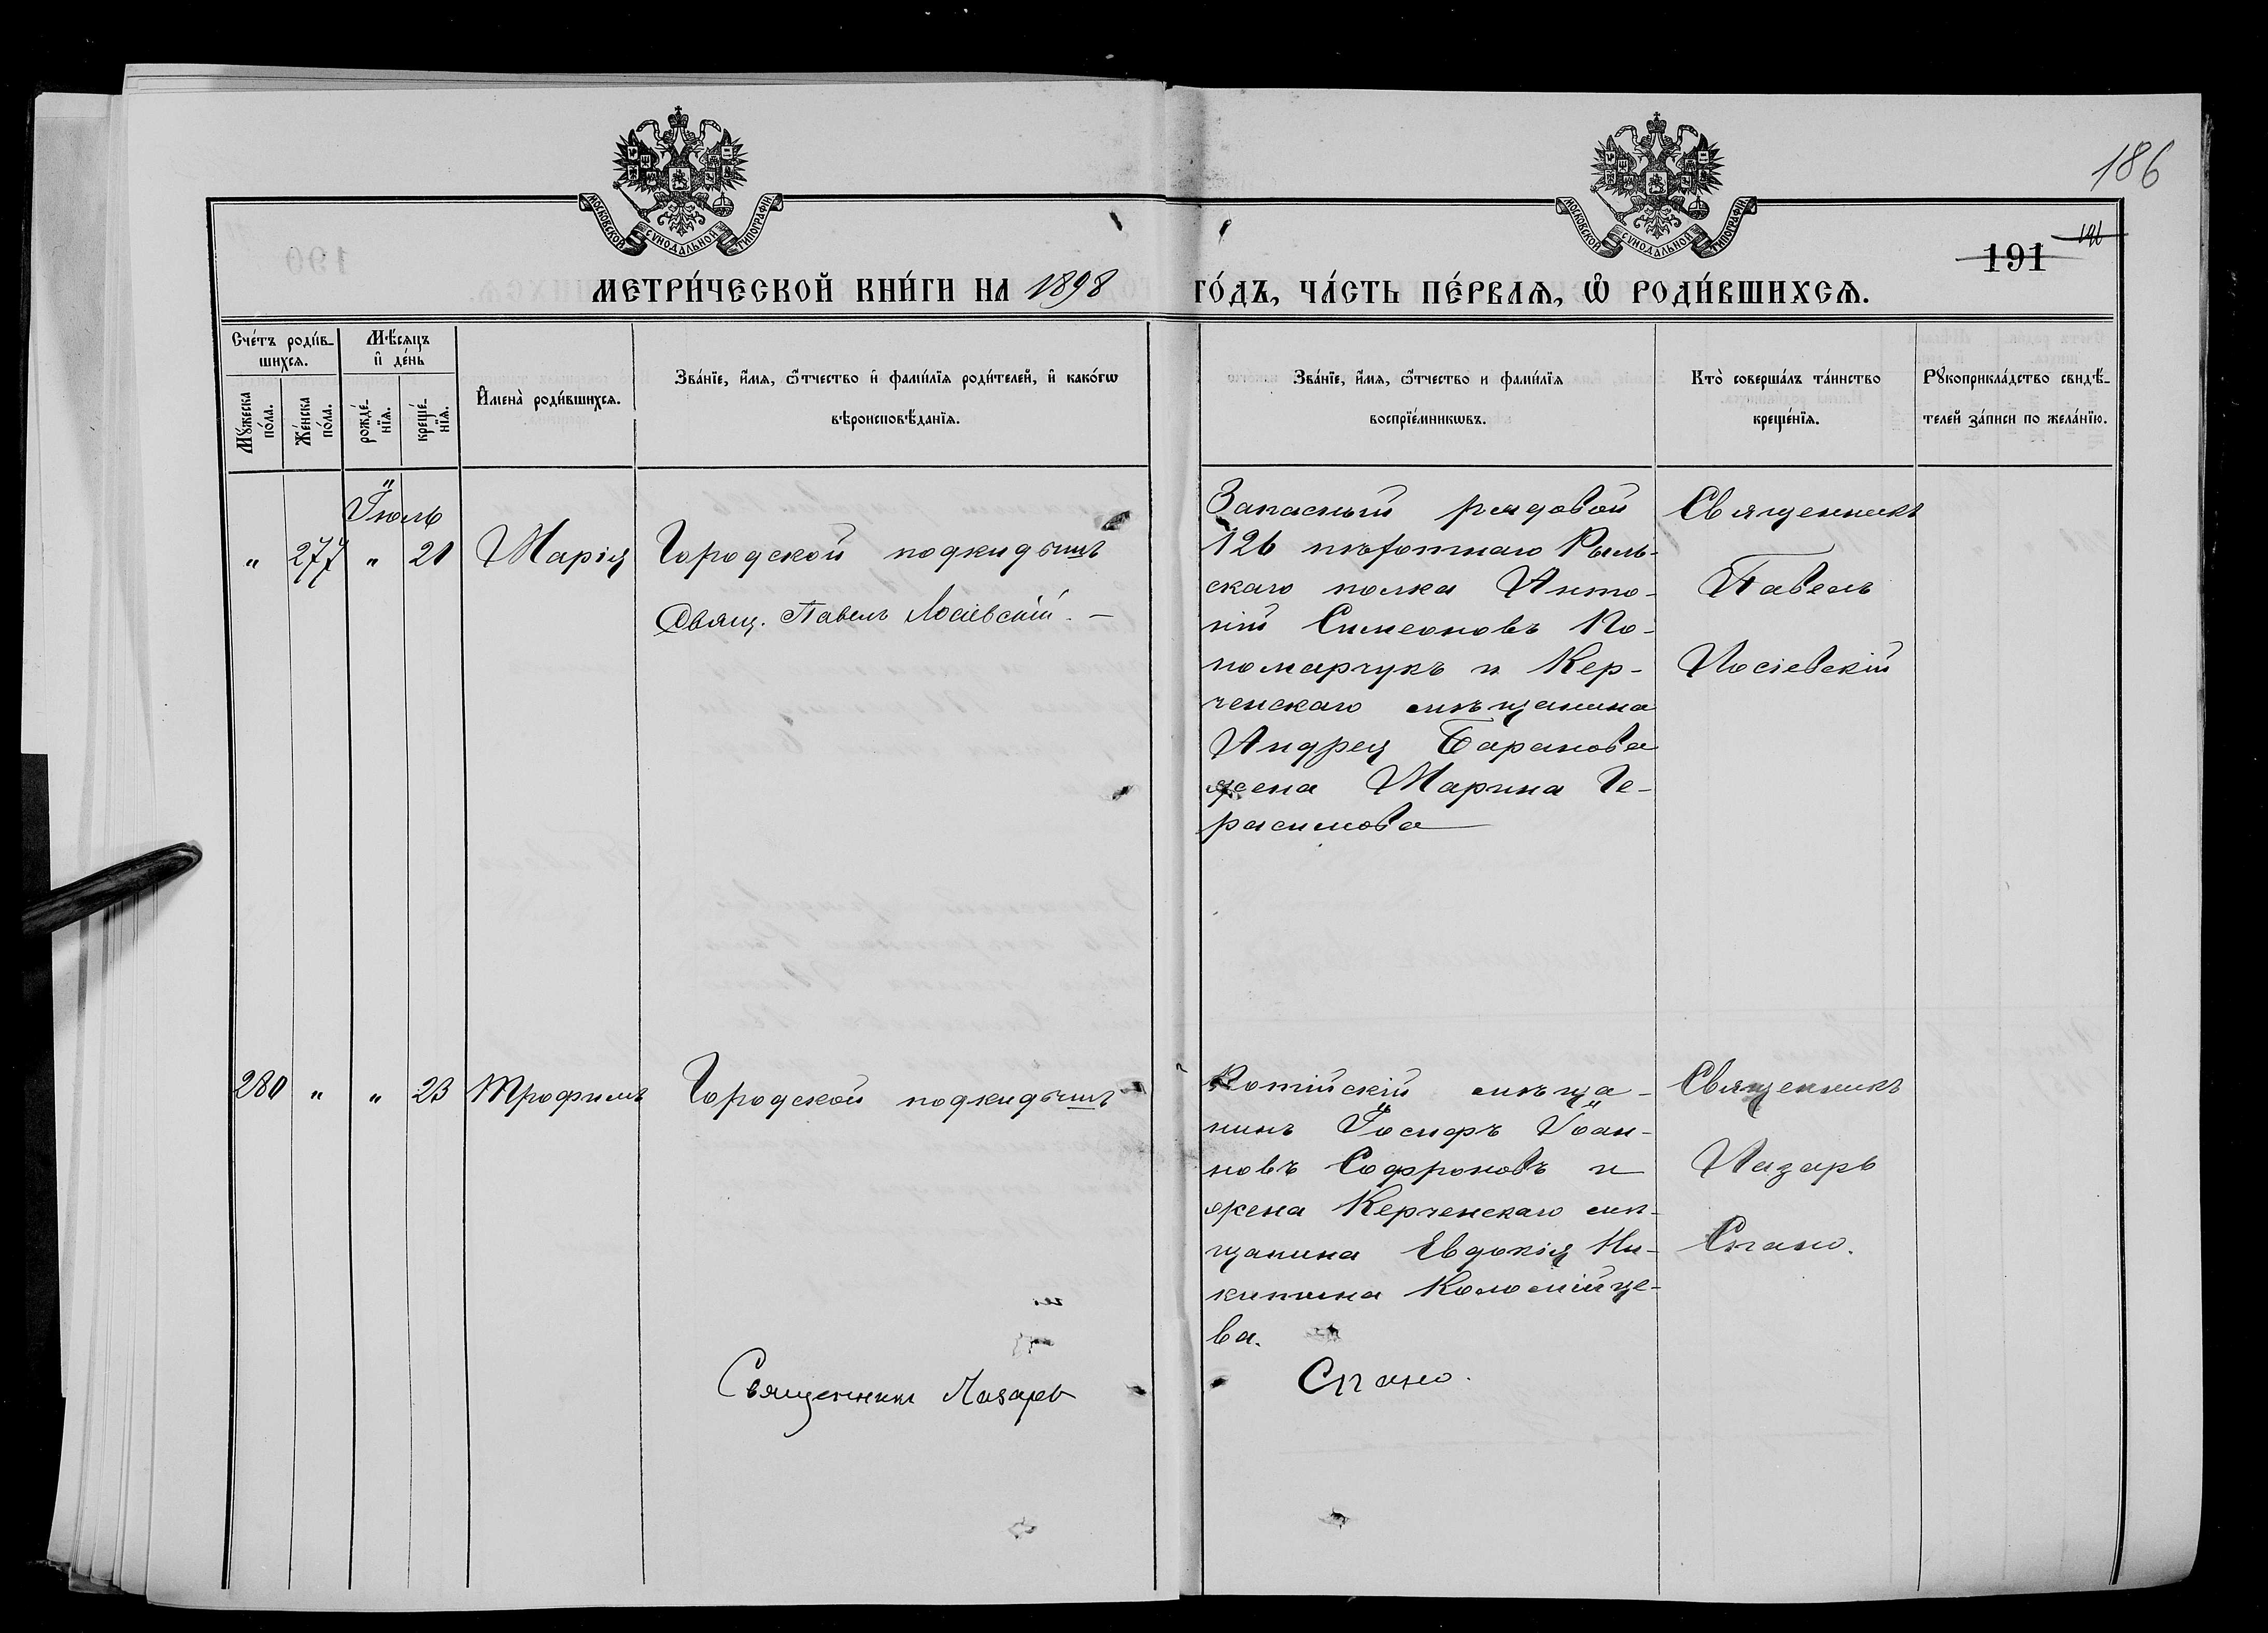 МОСКОВСКОЙ СѴНОДАЛЬНОЙ ТИПОГРАФІИ
МОСКОВСКОЙ СѴНОДАЛЬНОЙ ТИПОГРАФІИ
186
191
МЕТРИ́ЧЕСКОЙ КНИ́ГИ НА 1898 ГО́ДЪ, ЧА́СТЬ ПЕ́РВАѦ, Ѡ҆ РОДИ́ВШИХСѦ.
Сче́тъ роди́в-
шихсѧ.
Мѹ́жеска
по́ла.
Же́нска
по́ла.
Мѣ́сѧцъ
и҆ де́нь
рожде́-
нїѧ.
креще́-
нїѧ.
И҆мена̀ роди́вшихсѧ.
Зва́нїе, и҆́мѧ, ѻ҆́тчество и҆ фами́лїѧ роди́телей, и҆ како́гѡ
вѣроисповѣ́данїѧ.
Зва́нїе, и҆́мѧ, ѻ҆́тчество и фами́лїѧ
воспрїе́мникѡвъ.
Кто̀ соверша́лъ та́инство
креще́нїѧ.
Рѹкоприкла́дство свидѣ́-
телей за́писи по жела́нїю.
Іюль
" 277 " 21 Марія Городской подкидышъ
Свящ. Павелъ Лосіевскій. —
Запасный рядовой
126 пѣхотнаго Рыль-
скаго полка Анто-
ній Симеоновъ По-
номарчукъ и Кер-
ченскаго мѣщанина
Андрея Баранова
жена Марина Ге-
расимова
Священникъ
Павелъ
Лосіевскій
280 " " 23 Трофимъ Городской подкидышъ
Священникъ Лазарь
Потійскій мѣща-
нинъ Іосифъ Іоан-
новъ Софроновъ и
жена Керченскаго мѣ-
щанина Евдокія Ни-
китина Коломійце-
ва.
Спано.
Священникъ
Лазарь
Спано.